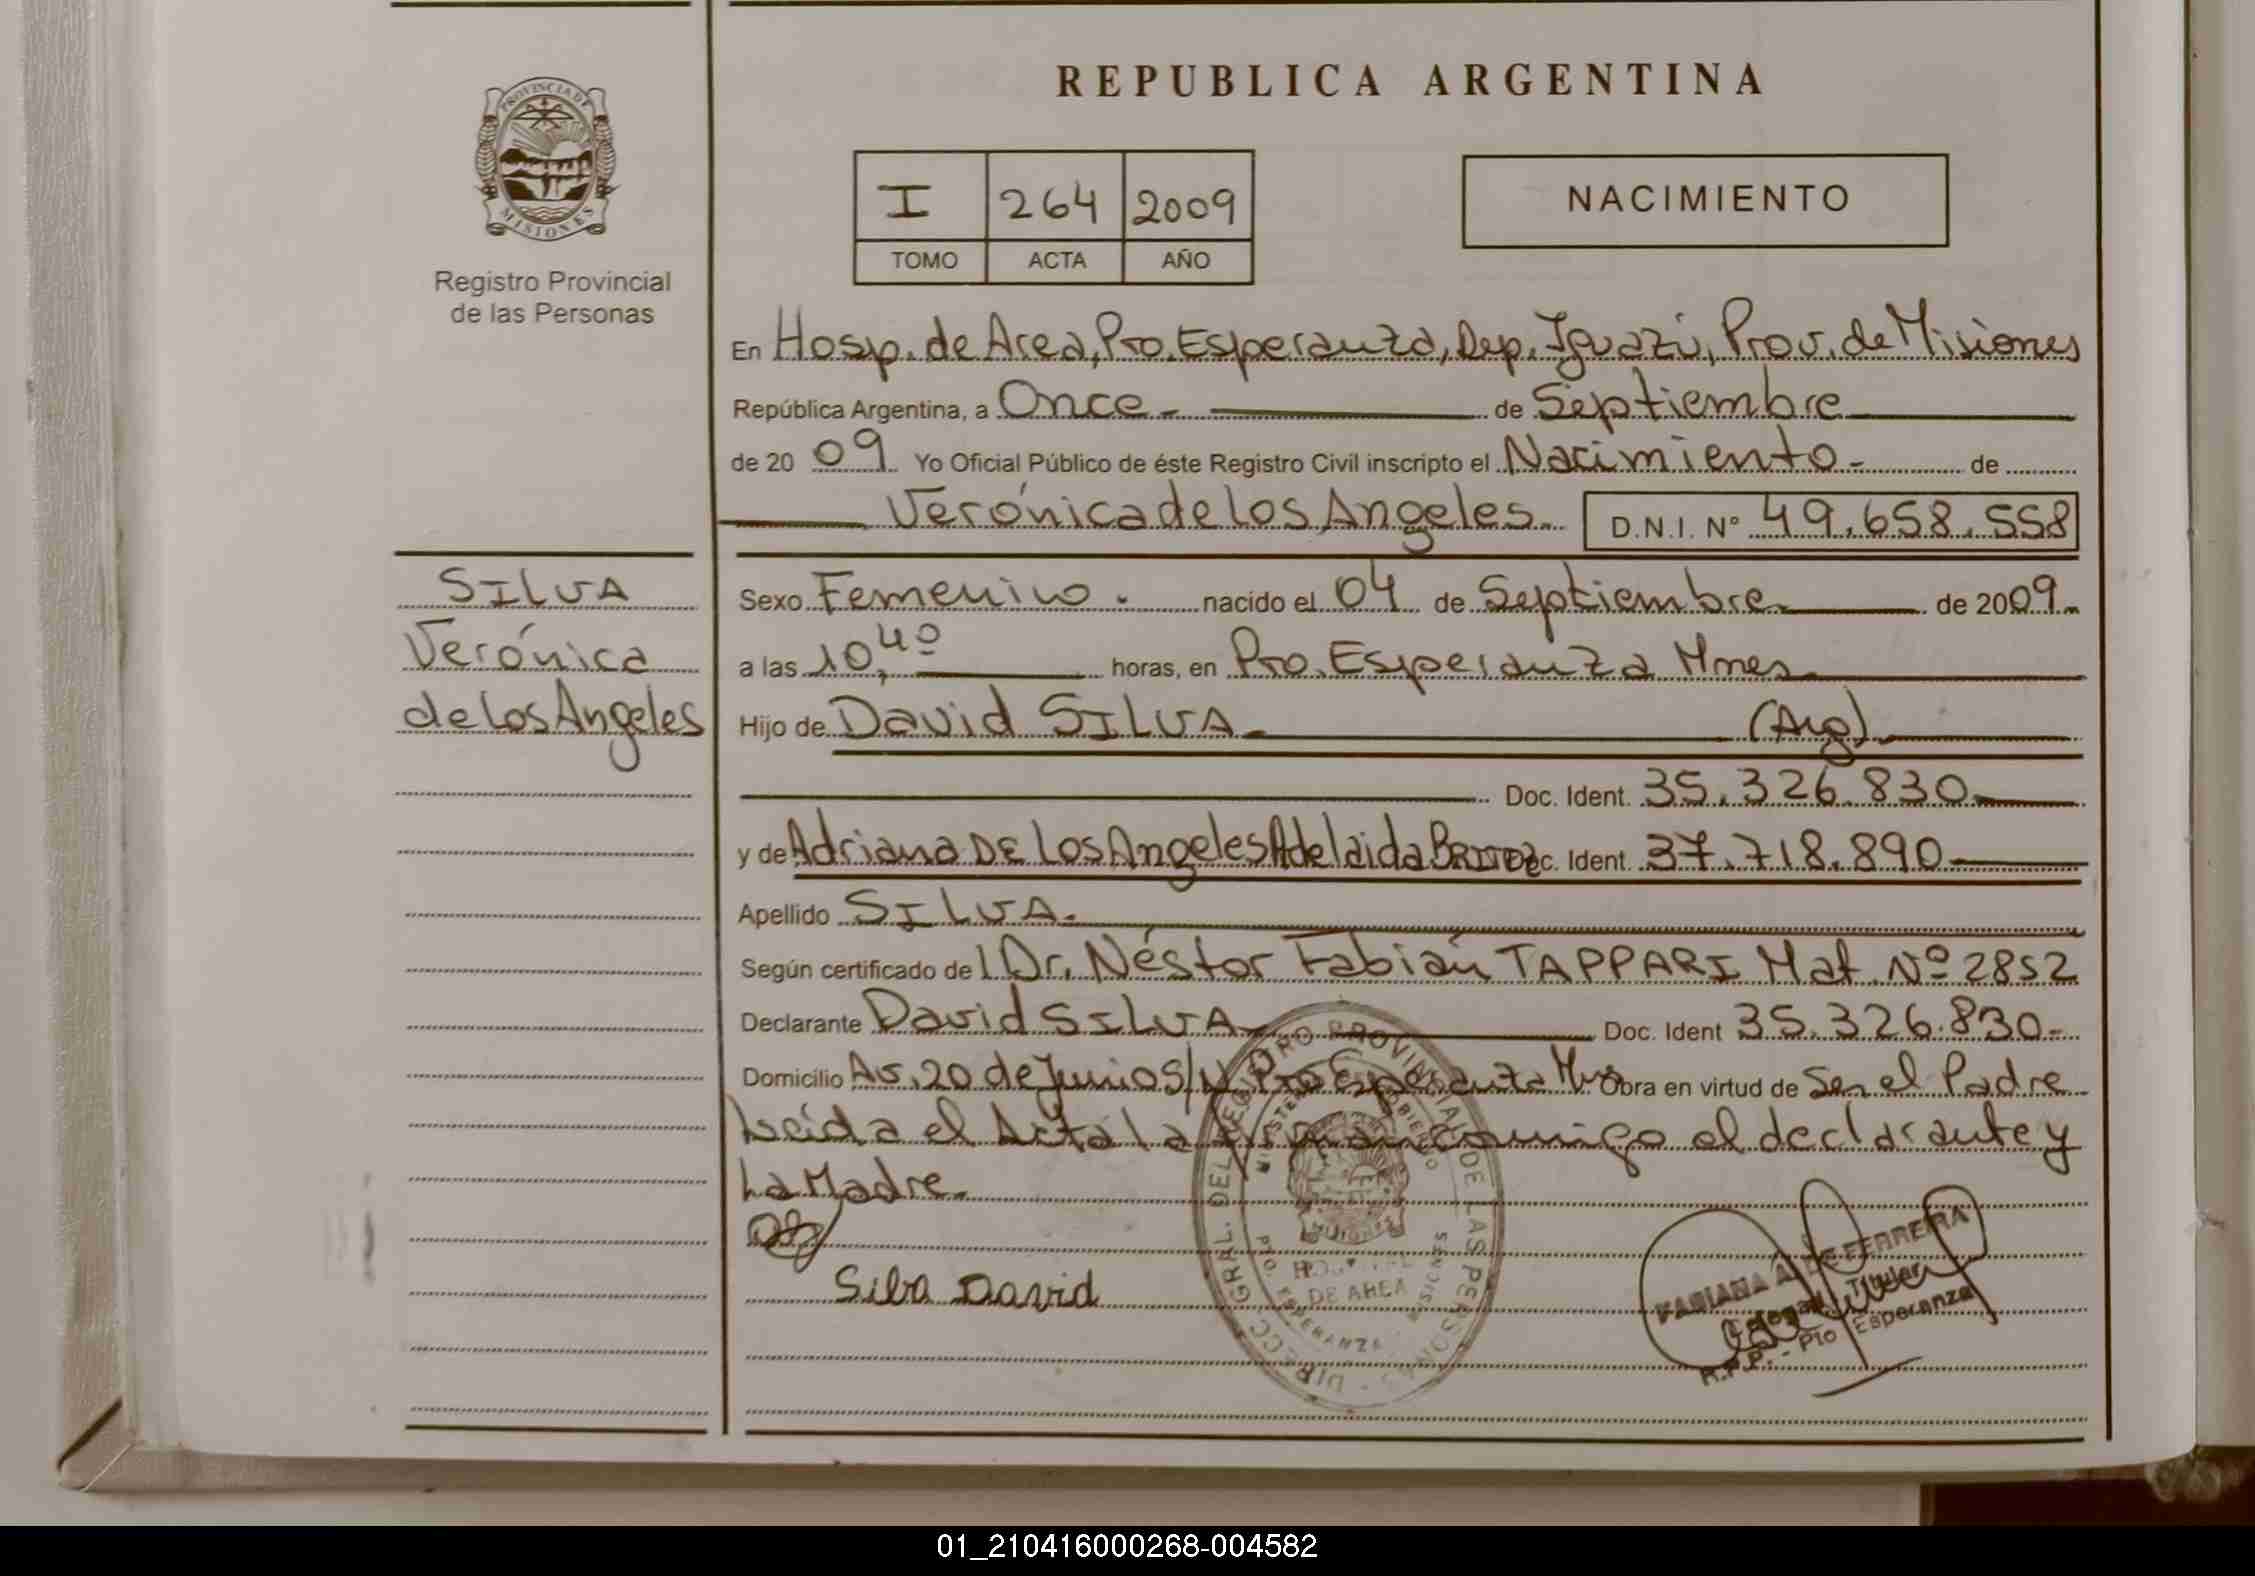 REPUBLICA ARGENTINA
PROVINCIA DE
MISIONES
Registro Provincial
de las Personas
I 264 2009
TOMO ACTA AÑO
NACIMIENTO
En Hosp. de Area, Pto. Esperanza, Dep. Iguazú, Prov. de Misiones
República Argentina, a Once.- de Septiembre
de 20 09 Yo Oficial Público de éste Registro Civil inscripto el Nacimiento.- de
Verónica de los Angeles. D.N.I. N° 49.658.558
SILVA
Verónica
de los Angeles
Sexo Femenino. nacido el 04 de Septiembre de 2009.-
a las 10,40 horas, en Pto. Esperanza Mnes.
Hijo de David SILVA.- (Arg).-
Doc. Ident. 35.326.830.-
y de Adriana DE Los Angeles Adelaida Doc. Ident. 37.718.890
Apellido SILVA.
Según certificado de l Dr. Néstor Fabián TAPPARI Mat. Nº 2852
Declarante David SILVA Doc. Ident 35.326.830.-
Domicilio Av. 20 de Junio S/N Pto Esperanza Mns Obra en virtud de Ser el Padre
Leída el Acta la firman conmigo el declarante y
La Madre.
Silva David
DIRECC. GRAL. DEL REGISTRO PROVINCIAL DE LAS PERSONAS
HOSPITAL
DE AREA
PTO. ESPERANZA - MISIONES
FABIANA A. DE FERREIRA
Titular
R.P.P. - Pto Esperanza
01_210416000268-004582